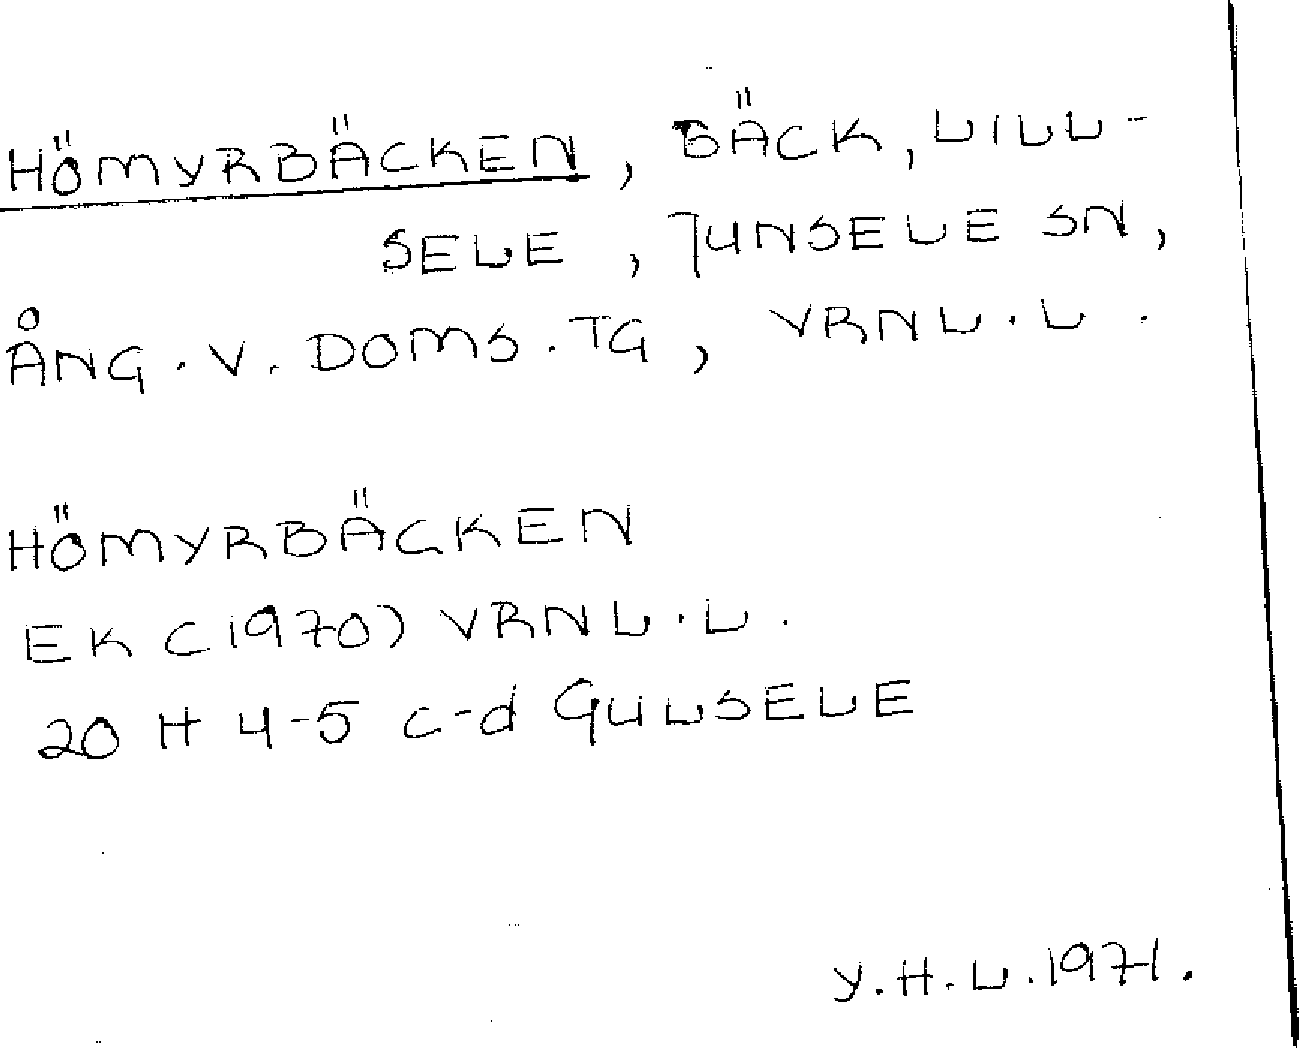 HÖMYRBÄCKEN, BÄCK, LILL-
SELE, JUNSELE SN,
ÅNG. V. DOMS. TG, VRNL. L.
HÖMYRBÄCKEN
EK (1970) VRNL. L.
20 H 4-5 c-d GULSELE
Y. H. L. 1971.